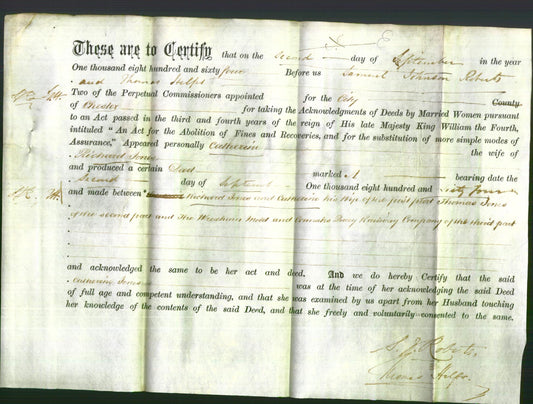 These are to Certify that on the second day of September in the year
One thousand eight hundred and sixty four Before us Samuel Johnson Roberts
and Thomas Helps
Two of the Perpetual Commissioners appointed for the City County
of Chester for taking the Acknowledgments of Deeds by Married Women pursuant
to an Act passed in the third and fourth years of the reign of His late Majesty King William the Fourth,
intituled "An Act for the Abolition of Fines and Recoveries, and for the substitution of more simple modes of
Assurance," Appeared personally Catherine the wife of
Richard Jones
and produced a certain Deed marked A bearing date the
Second day of September One thousand eight hundred and sixty four
and made between Richard Jones and Catherine his Wife of the first part Thomas Jones
of the second part and The Wrexham Mold and Connah's Quay Railway Company of the third part
and acknowledged the same to be her act and deed. And we do hereby Certify that the said
Catherine Jones was at the time of her acknowledging the said Deed
of full age and competent understanding, and that she was examined by us apart from her Husband touching
her knowledge of the contents of the said Deed, and that she freely and voluntarily consented to the same.
S. J. Roberts
Thomas Helps